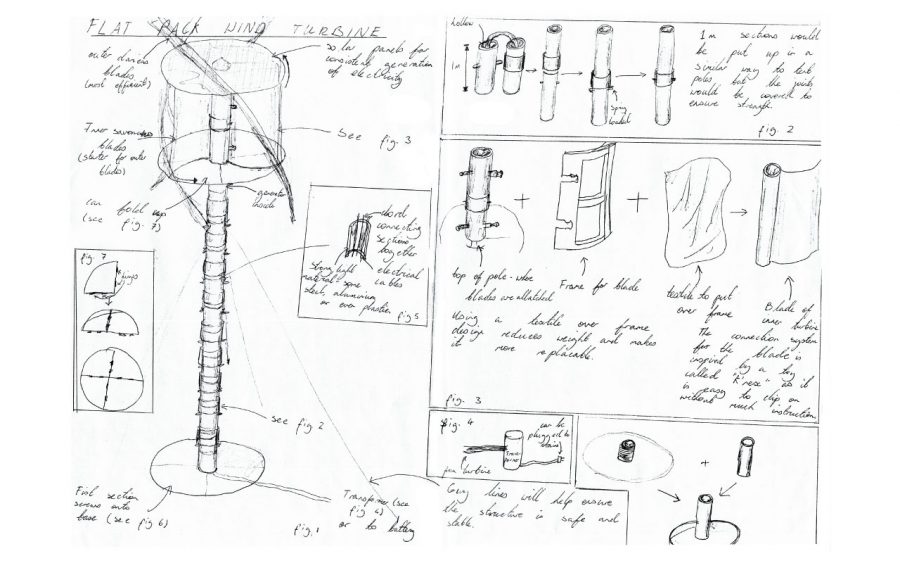 FLAT PACK WIND TURBINE
outer
blades
(most efficient)
solar panels for
consistent generation
of electricity
Inner savonius
blades
(starter for outer
blades)
see fig. 3
generator
inside
can fold up
(see
fig. 7)
fig. 7
hinge
chord
connecting
sections
together
electrical
cables
strong light
material some
steel, aluminium
or even plastic
fig 5
see fig 2
First section
screws onto
base (see fig 6)
fig. 1
Transformer (see
fig 4)
or to battery
hollow
1m
Spring
loaded
1m sections would
be put up in a
similar way to tent
poles but the joints
would be covered to
ensure strength.
fig. 2
top of pole - where
blades are attatched
Frame for blade
textile to put
over frame
Blade of
inner turbine
Using a textile over frame
design reduces weight and makes
it more replacable.
The connection system
for the blade is
inspired by a toy
called "K'nex" as it
is easy to clip on
without much instruction.
fig. 3
fig. 4
can be
plugged to
mains
from turbine
Guy lines will help ensure
the structure is safe and
stable.